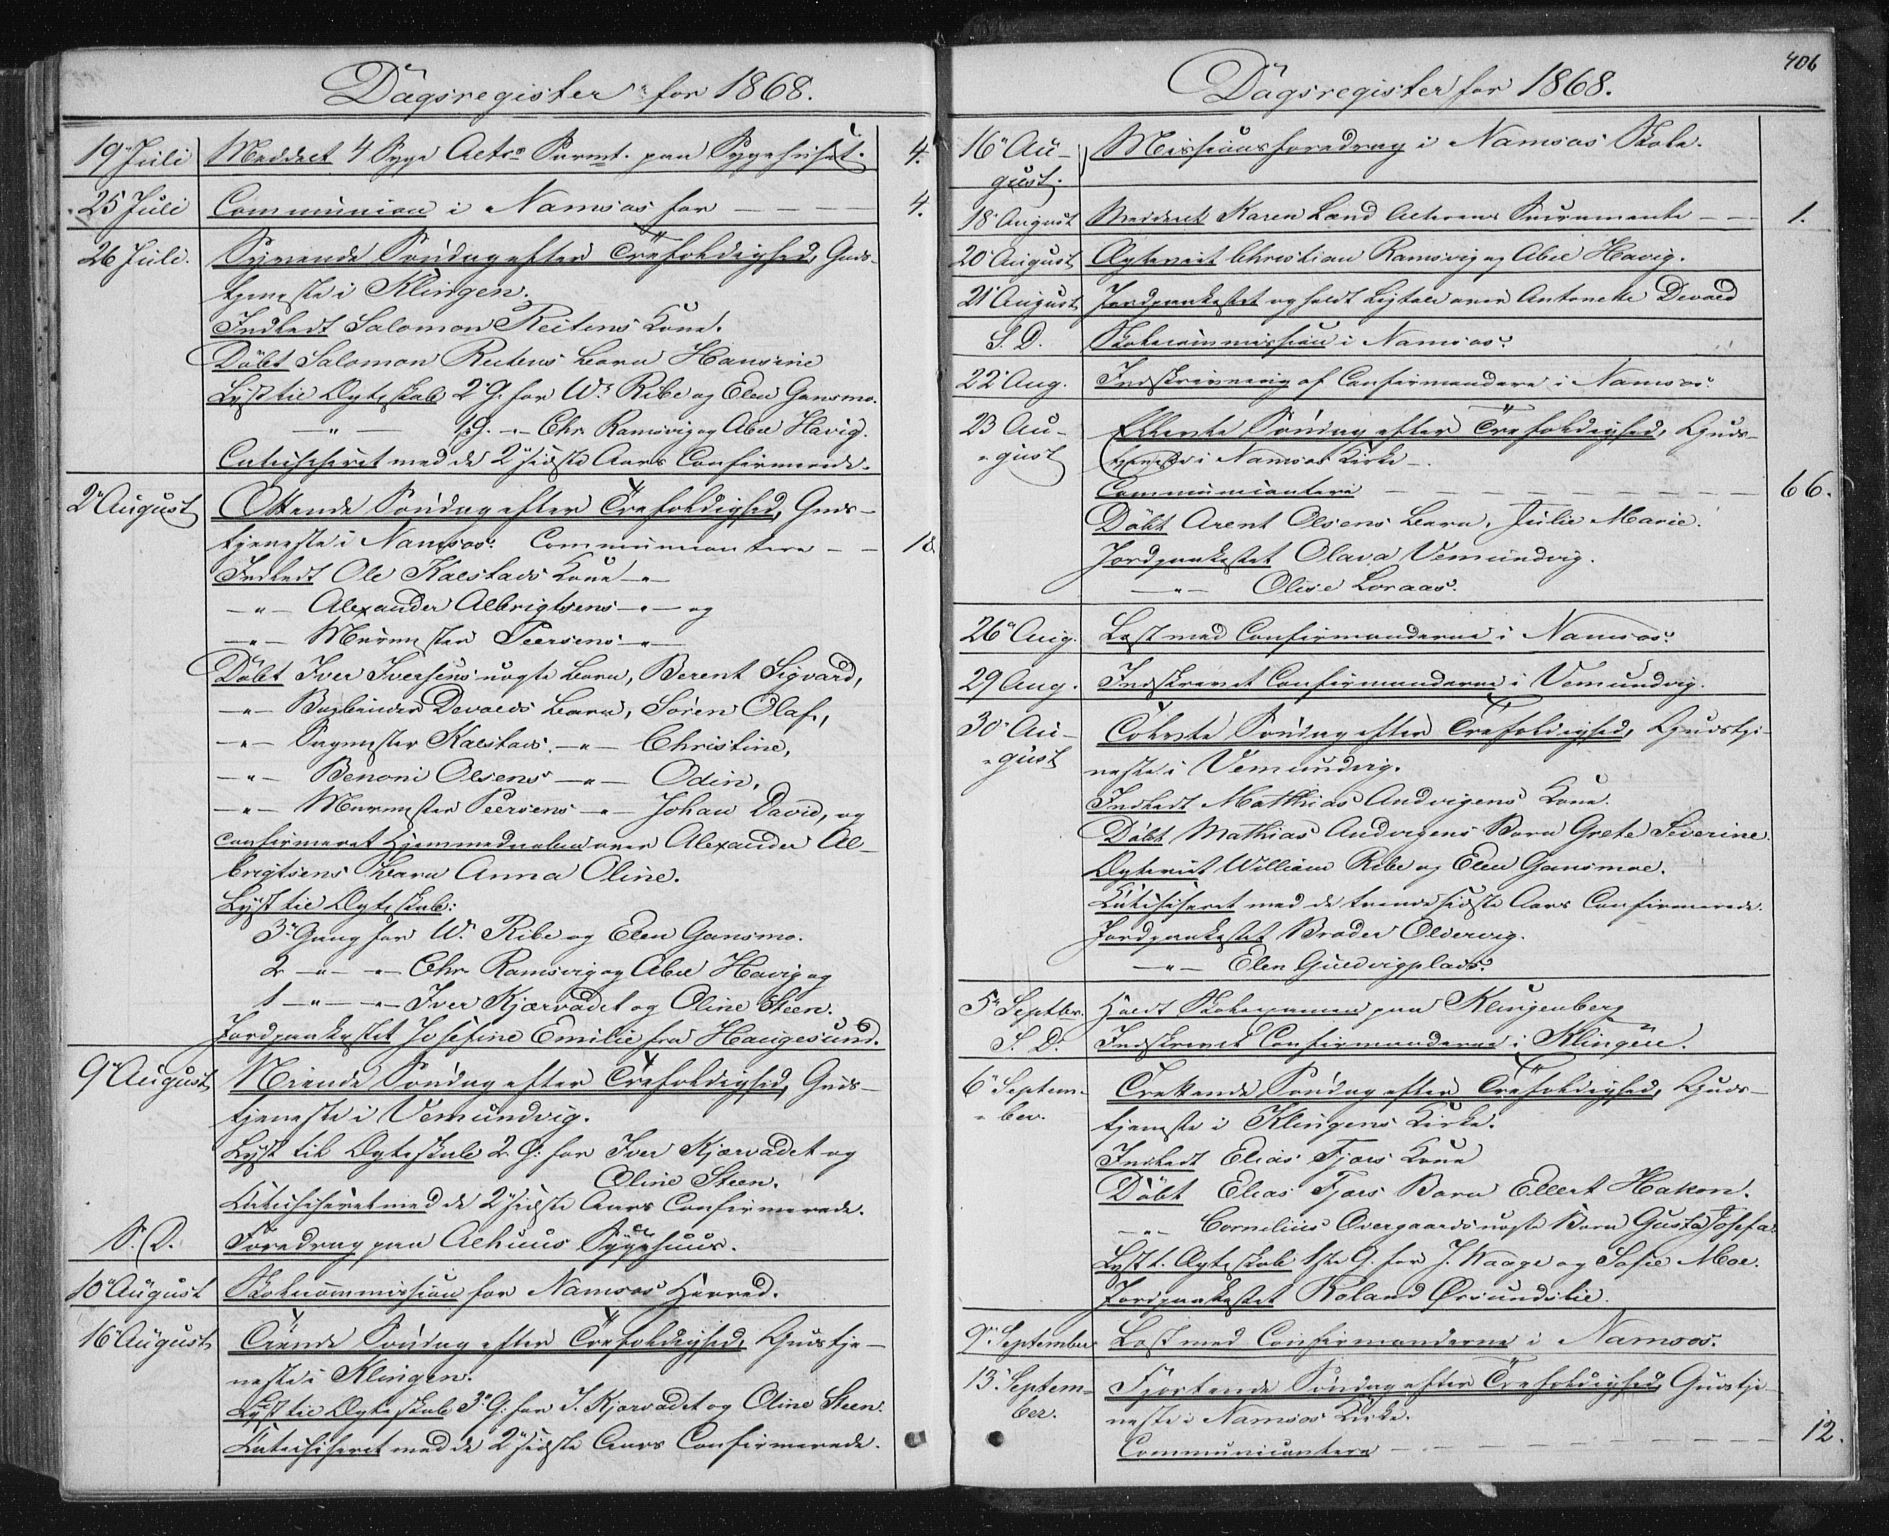 Dagsregister for 1868.
19 Juli Meddelt 4 Syge Altrs Sacrmt. paa Sygehuset. 4.
25 Juli Communion i Namsos for — — — 4.
26 Juli. Syvende Søndag efter Trefoldighed, Guds-
tjeneste i Klingen.
Indledt Salomon Reitens Kone.
Döbt Salomon Reitens Barn Hansine
Lyst til Ægteskab 2 G. for Wm Ribe og Elen Gansmo.
— " — 1ste G. -"- Chr. Ramsvig og Abel Havig.
Catechiseret med de 2 sidste Aars Confirmerede.
2 August Ottende Søndag efter Trefoldighed, Guds-
tjeneste i Namsos. Communicantere — — 18
Indledt Ole Kaelstads Kone -"-
-"- Alexander Albrigtsens -"- og
-"- Murmester Peersens -"-
Döbt Iver Iversens uægte Barn, Berent Sigvard,
-"- Bogbinder Devolds Barn, Sören Olaf,
-"- Kaelstads -"- Christine,
-"- Benoni Olsens -"- Odin,
-"- Murmester Peersens -"- Johan David, og
confirmeret Hjemmedaaben over Alexander Al-
brigtsens Barn Anna Oline.
Lyst til Ægteskab:
3 Gang for Wm Ribe og Elen Gansmo.
2 -"- -"- Chr. Ramsvig og Abel Havig og
1 -"- -"- Iver Kjærvadet og Oline Steen.
Jordpaakastet Josefine Emilie fra Haugesund.
9 August Niende Søndag efter Trefoldighed, Guds-
tjeneste i Vemundvig.
Lyst til Ægteskab 2 G. for Iver Kjærvadet og
Oline Steen.
Katechiseret med de 2 sidste Aars Confirmerede.
S. D. Foredrag paa Sygehuus.
10 August Skolecommission for Namsos Herred.
16 August Tiende Søndag efter Trefoldighed, Gudstje-
neste i Klingen.
Lyst til Ægteskab 3 G. for I. Kjærvadet og Oline Steen.
Katechiseret med de 2 sidste Aars Confirmerede.
406
Dagsregister for 1868.
16 Au-
gust. Missionsforedrag i Namsos Skole.
18 August Meddelt Karen Lænd Alterens Sacramente — — 1.
20 August Ægteviet Christian Ramsvig og Abel Havig.
21 August Jordpaakastet og holdt Ligtale over Antonette Devold
S. D. Skolecommission i Namsos.
22 Aug. Indskrivning af Confirmandere i Namsos.
23 Au-
gust Ellevte Søndag efter Trefoldighed, Guds-
tjeneste i Namsos Kirke -.
Communicantere — — — 66.
Döbt Arent Olsens Barn, Julie Marie.
Jordpaakastet Olava Vemundvig.
-"- Olise Loraas.
26 Aug. Læst med Confirmanderne i Namsos.
29 Aug. Indskrevet Confirmanderne i Vemundvig.
30 Au-
gust Tolvte Søndag efter Trefoldighed, Gudstje-
neste i Vemundvig.
Indledt Matthias Andvigens Kone.
Döbt Mathias Andvigens Barn Grete Severine.
Ægteviet William Ribe og Elen Gansmoe.
Katechiseret med de tvende sidste Aars Confirmerede.
Jordpaakastet Broder Oldervig.
-"- Elen Guldvigplads.
5 Septbr. Holdt Skoleexamen paa Klingenberg
S. D. Indskrevet Confirmanderne i Klingen.
6 Septem-
ber. Trettende Søndag efter Trefoldighed, Guds-
tjeneste i Klingens Kirke.
Indledt Elias Fjærs Kone
Döbt Elias Fjærs Barn Ellert Hakon.
-"- Cornelius Overgaards uægte Barn Gusta Josefa
Lyst t. Ægteskab 1ste G. for J. Waage og Sofie Moe.
Jordpaakastet Roland Ørsundslie.
9 September Læst med Confirmanderne i Namsos.
13 Septem-
ber. Fjortende Søndag efter Trefoldighed, Gudstje-
neste i Namsos Kirke.
Communicantere — — — 12.